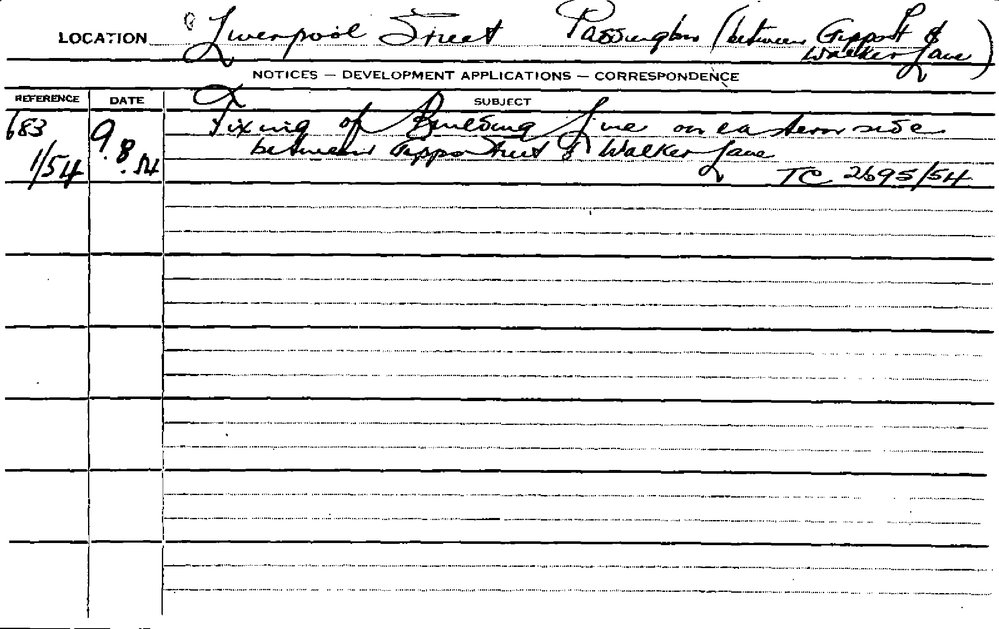 LOCATION Liverpool Street Paddington (between Gipps St &
Walker Lane)
NOTICES — DEVELOPMENT APPLICATIONS — CORRESPONDENCE
REFERENCE DATE SUBJECT
683 9.8.54 Fixing of Building Line on eastern side
1/54 between Gipps Street & Walker Lane
TC 2695/54